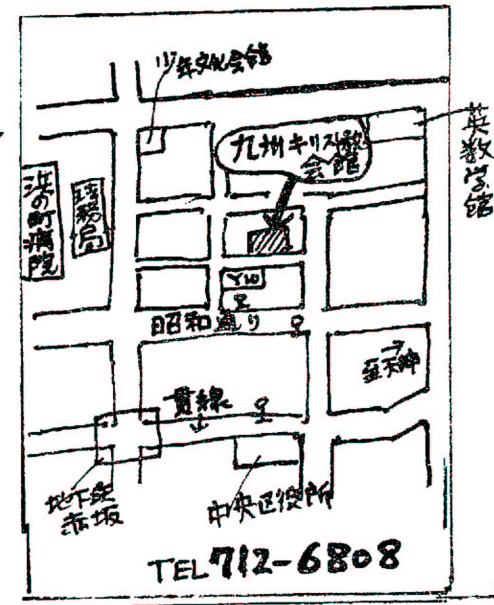 少年文化会館
九州キリスト教
会館
英数学館
浜の町病院
財務局
昭和通り
至天神
貫線
地下鉄
赤坂
中央区役所
TEL 712-6808